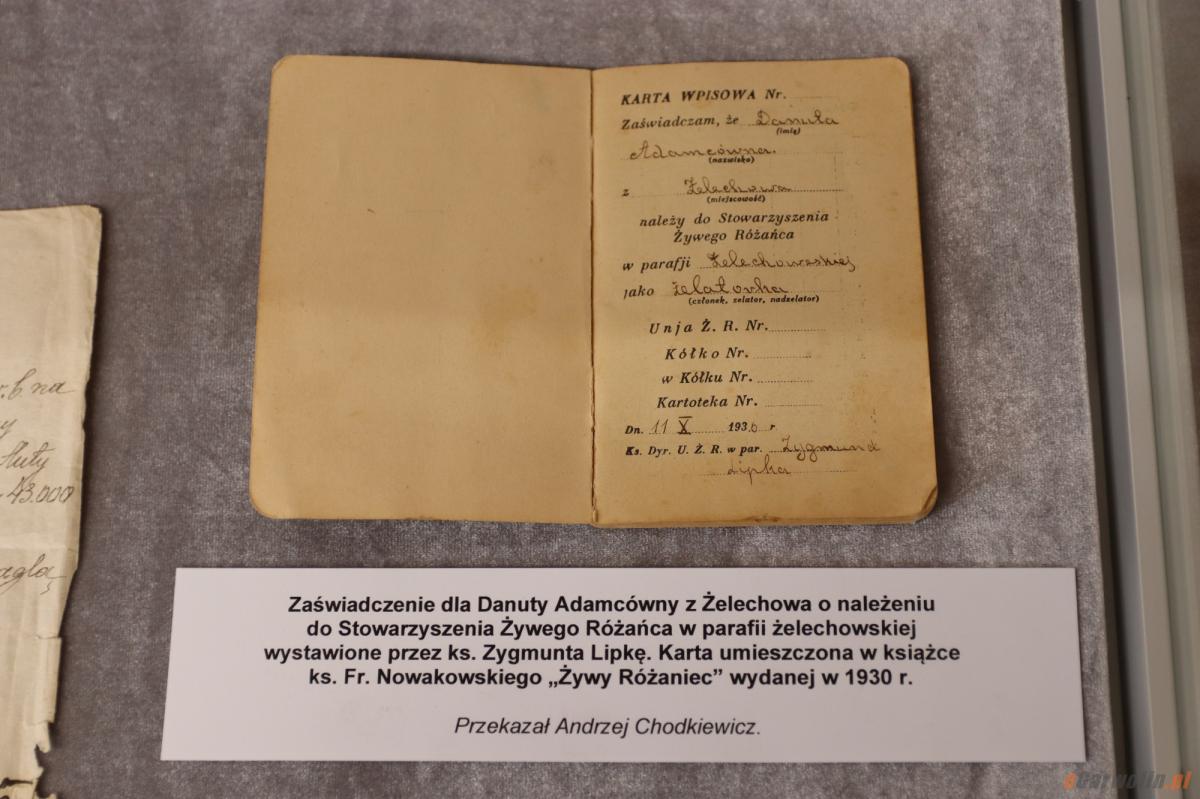 r. b. na
y
Huty
43.000
nagłą
KARTA WPISOWA Nr.
Zaświadczam, że Danuta
(imię)
Adamcówna.
(nazwisko)
z Żelechowa
(miejscowość)
należy do Stowarzyszenia
Żywego Różańca
w parafji Żelechowskiej
jako żelatorka
(członek, zelator, nadzelator)
Unja Ż. R. Nr.
Kółko Nr.
w Kółku Nr.
Kartoteka Nr.
Dn. 11 X 1930 r
Ks. Dyr. U. Ż. R. w par. Zygmund
Lipka
Zaświadczenie dla Danuty Adamcówny z Żelechowa o należeniu
do Stowarzyszenia Żywego Różańca w parafii żelechowskiej
wystawione przez ks. Zygmunta Lipkę. Karta umieszczona w książce
ks. Fr. Nowakowskiego „Żywy Różaniec” wydanej w 1930 r.
Przekazał Andrzej Chodkiewicz.
eGarwolin.pl